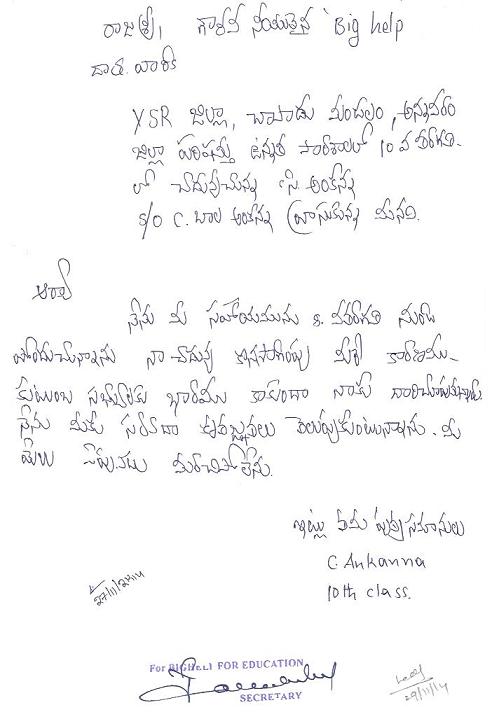 రాజశ్రీ, గౌరవ నీయులైన 'Big help
దాత. వారికి
YSR జిల్లా, చాపాడు మండలం, అన్నవరం
జిల్లా పరిషత్తు ఉన్నత పాఠశాలలో 10 వ తరగతి.
లో చదువుచున్న సి. అంకన్న
S/O C. బాల అంకన్న వ్రాసుకున్న మనవి.
ఆర్యా
నేను మీ సహాయమును 8. వతరగతి నుండి
పొందుచున్నాను నా చదువు కొనసాగింపు మీరే కారణము.
కుటుంబ సభ్యులకు భారము కాకుండా నాకు దారిచూపుతున్నారు
నేను మీకు సర్వదా కృతజ్ఞతలు తెలుపుకుంటున్నాను. మీ
మేలు ఎప్పుడు మరచిపోలేను.
ఇట్లు మీ పుత్ర సమానులు
C. Ankanna
10th class.
27/11/2014
For BIGHELP FOR EDUCATION
SECRETARY
29/11/14